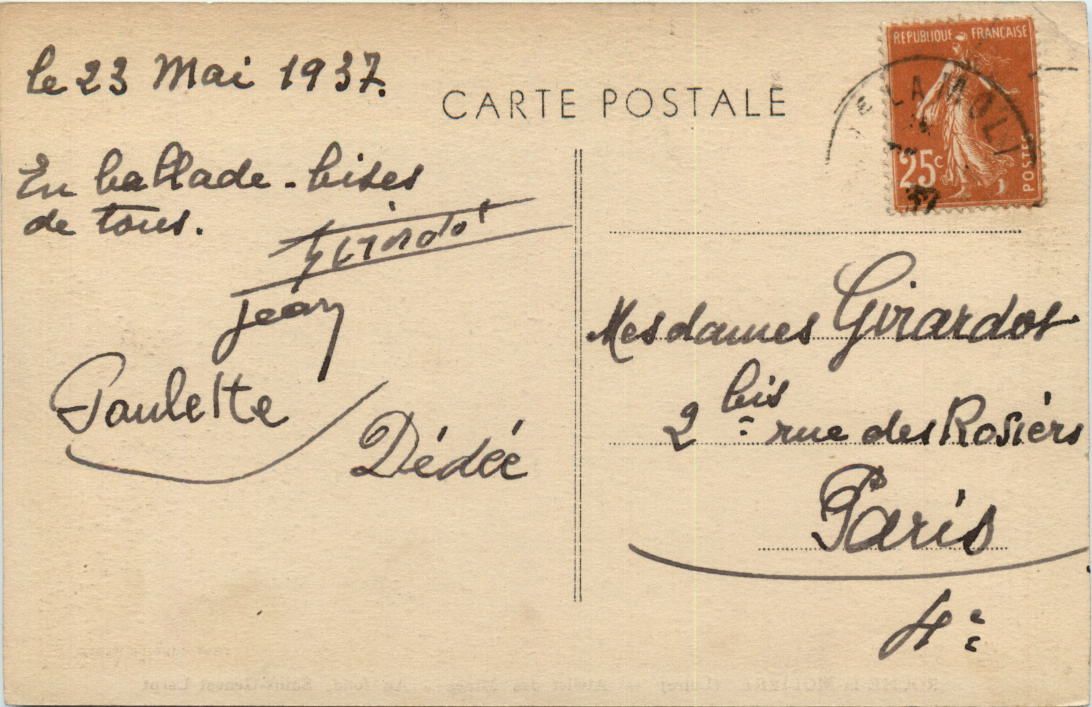 le 23 Mai 1937.
CARTE POSTALE
En ballade - bises
de tous.
Jean
Paulette
Dédée
REPUBLIQUE FRANÇAISE
25c
POSTES
LA MOLI
37
Mesdames Girardot
2 bis rue des Rosiérs
Paris
4e